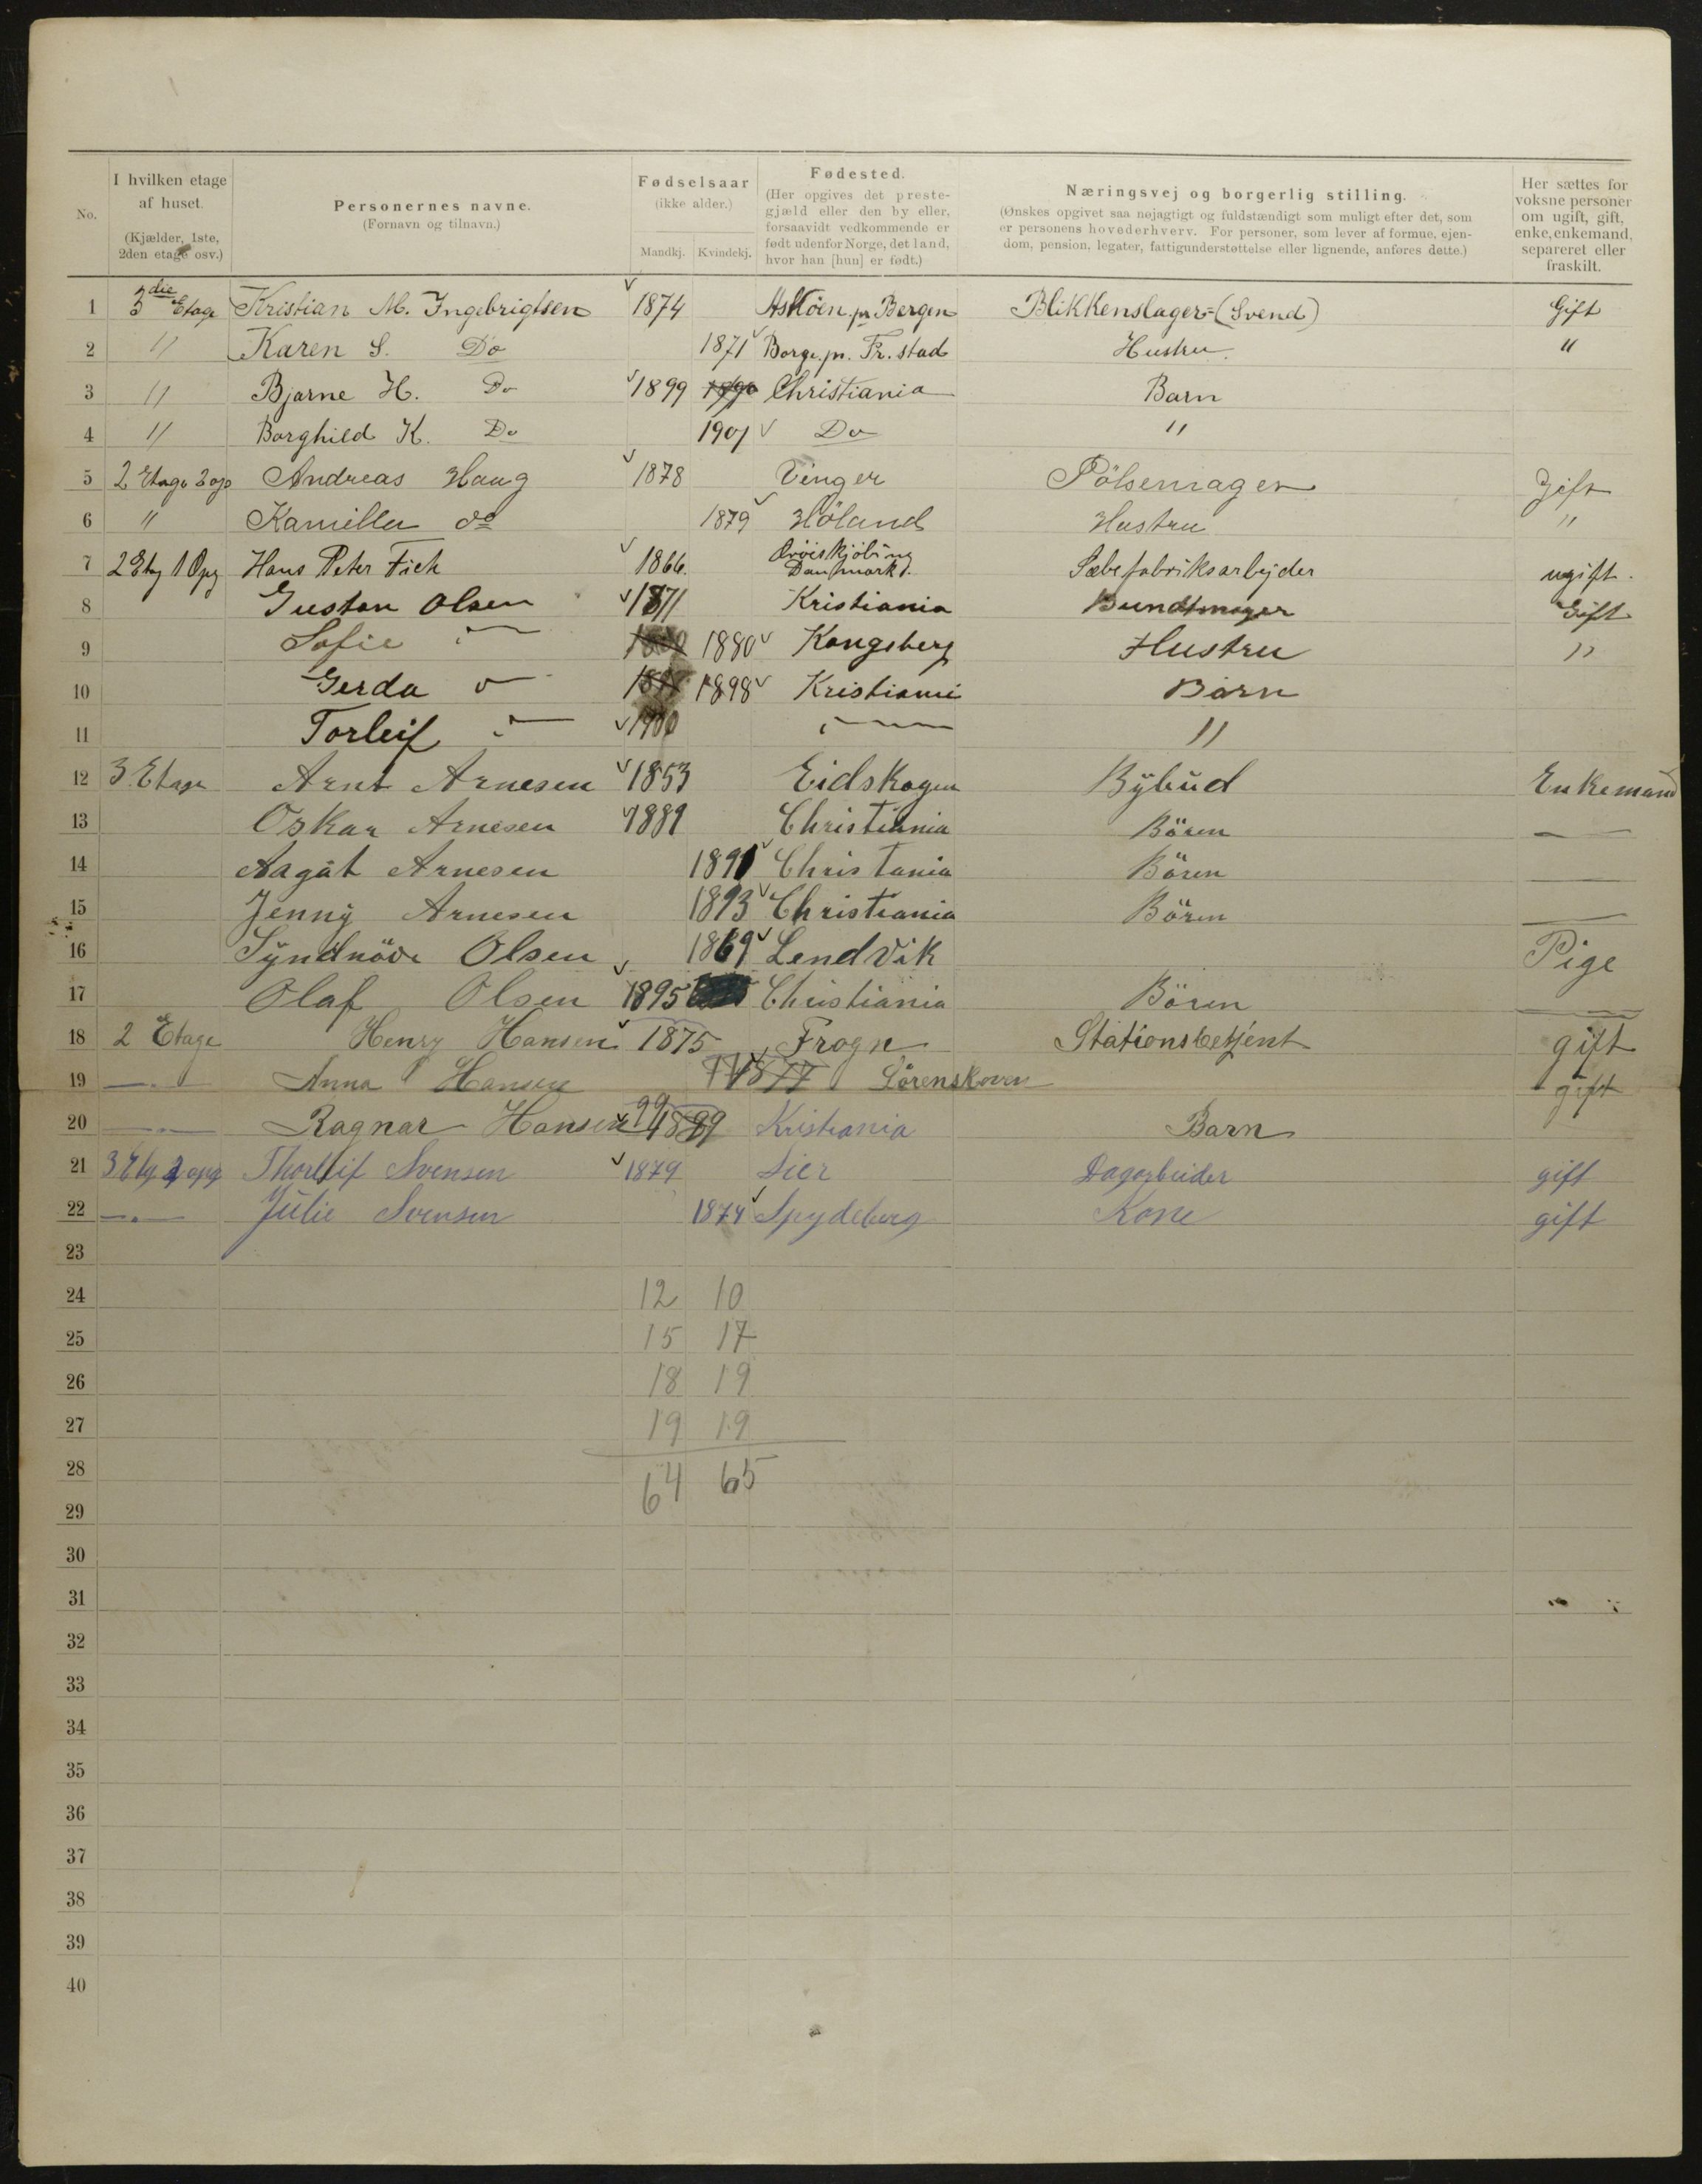 No. I hvilken etage af huset. (Kjælder, 1ste, 2den etage osv.) Personernes navne. (Fornavn og tilnavn.) Fødselsaar (ikke alder.) Mandkj. Kvindekj. Fødested. (Her opgives det prestegjæld eller den by eller, forsaavidt vedkommende er født udenfor Norge, det land, hvor han [hun] er født.) Næringsvej og borgerlig stilling. (Ønskes opgivet saa nøjagtigt og fuldstændigt som muligt efter det, som er personens hovederhverv. For personer, som lever af formue, ejendom, pension, legater, fattigunderstøttelse eller lignende, anføres dette.) Her sættes for voksne personer om ugift, gift, enke, enkemand, separeret eller fraskilt.
1 3die Etage Kristian M. Ingebrigtsen 1874 Askøen pr Bergen Blikkenslager=(Svend) Gift
2 " Karen S. Do 1871 Borge. pr. Fr. stad Hustru "
3 " Bjarne H. Do 1899 Christiania Barn
4 " Borghild K. Do 1901 Do "
5 2 Etage 2 op Andreas Haug 1878 Vinger Pölsemager Gift
6 " Kamilla do 1879 Höland Hustru "
7 2 Etg 1 Opg Hans Peter Fich 1866. Danmark. Sæbefabriksarbejder ugift.
8 Gustav Olsen 1871 Kristiania Bundtmager Gift
9 Sofie 1880 Kongsberg Hustru "
10 Gerda 1898 Kristiani Barn
11 Torleif 1900 "
12 3 Etage Arnt Arnesen 1853 Eidskogen Bybud Enkemand
13 Oskar Arnesen 1889 Christiania Bören —
14 Aagåt Arnesen 1891 Christania Bören —
15 Jenny Arnesen 1893 Christiania Bören —
16 Syndnöve Olsen 1869 Lendvik Pige
17 Olaf Olsen 1895 Christiania Bören —
18 2 Etage Henry Hansen 1875 Frogn Stationsbetjent gift
19 —"— Anna Hansen 1877 Sörenskoven gift
20 —"— Ragnar Hansen 99 1899 Kristiania Barn
21 3 Etg 2 opg Thorleif Svensen 1879 Lier Dagarbeider gift
22 —"— Julie Svensen 1874 Spydeberg Kone gift
23
24 12 10
25 15 17
26 18 19
27 19 19
28 64 65
29
30
31
32
33
34
35
36
37
38
39
40